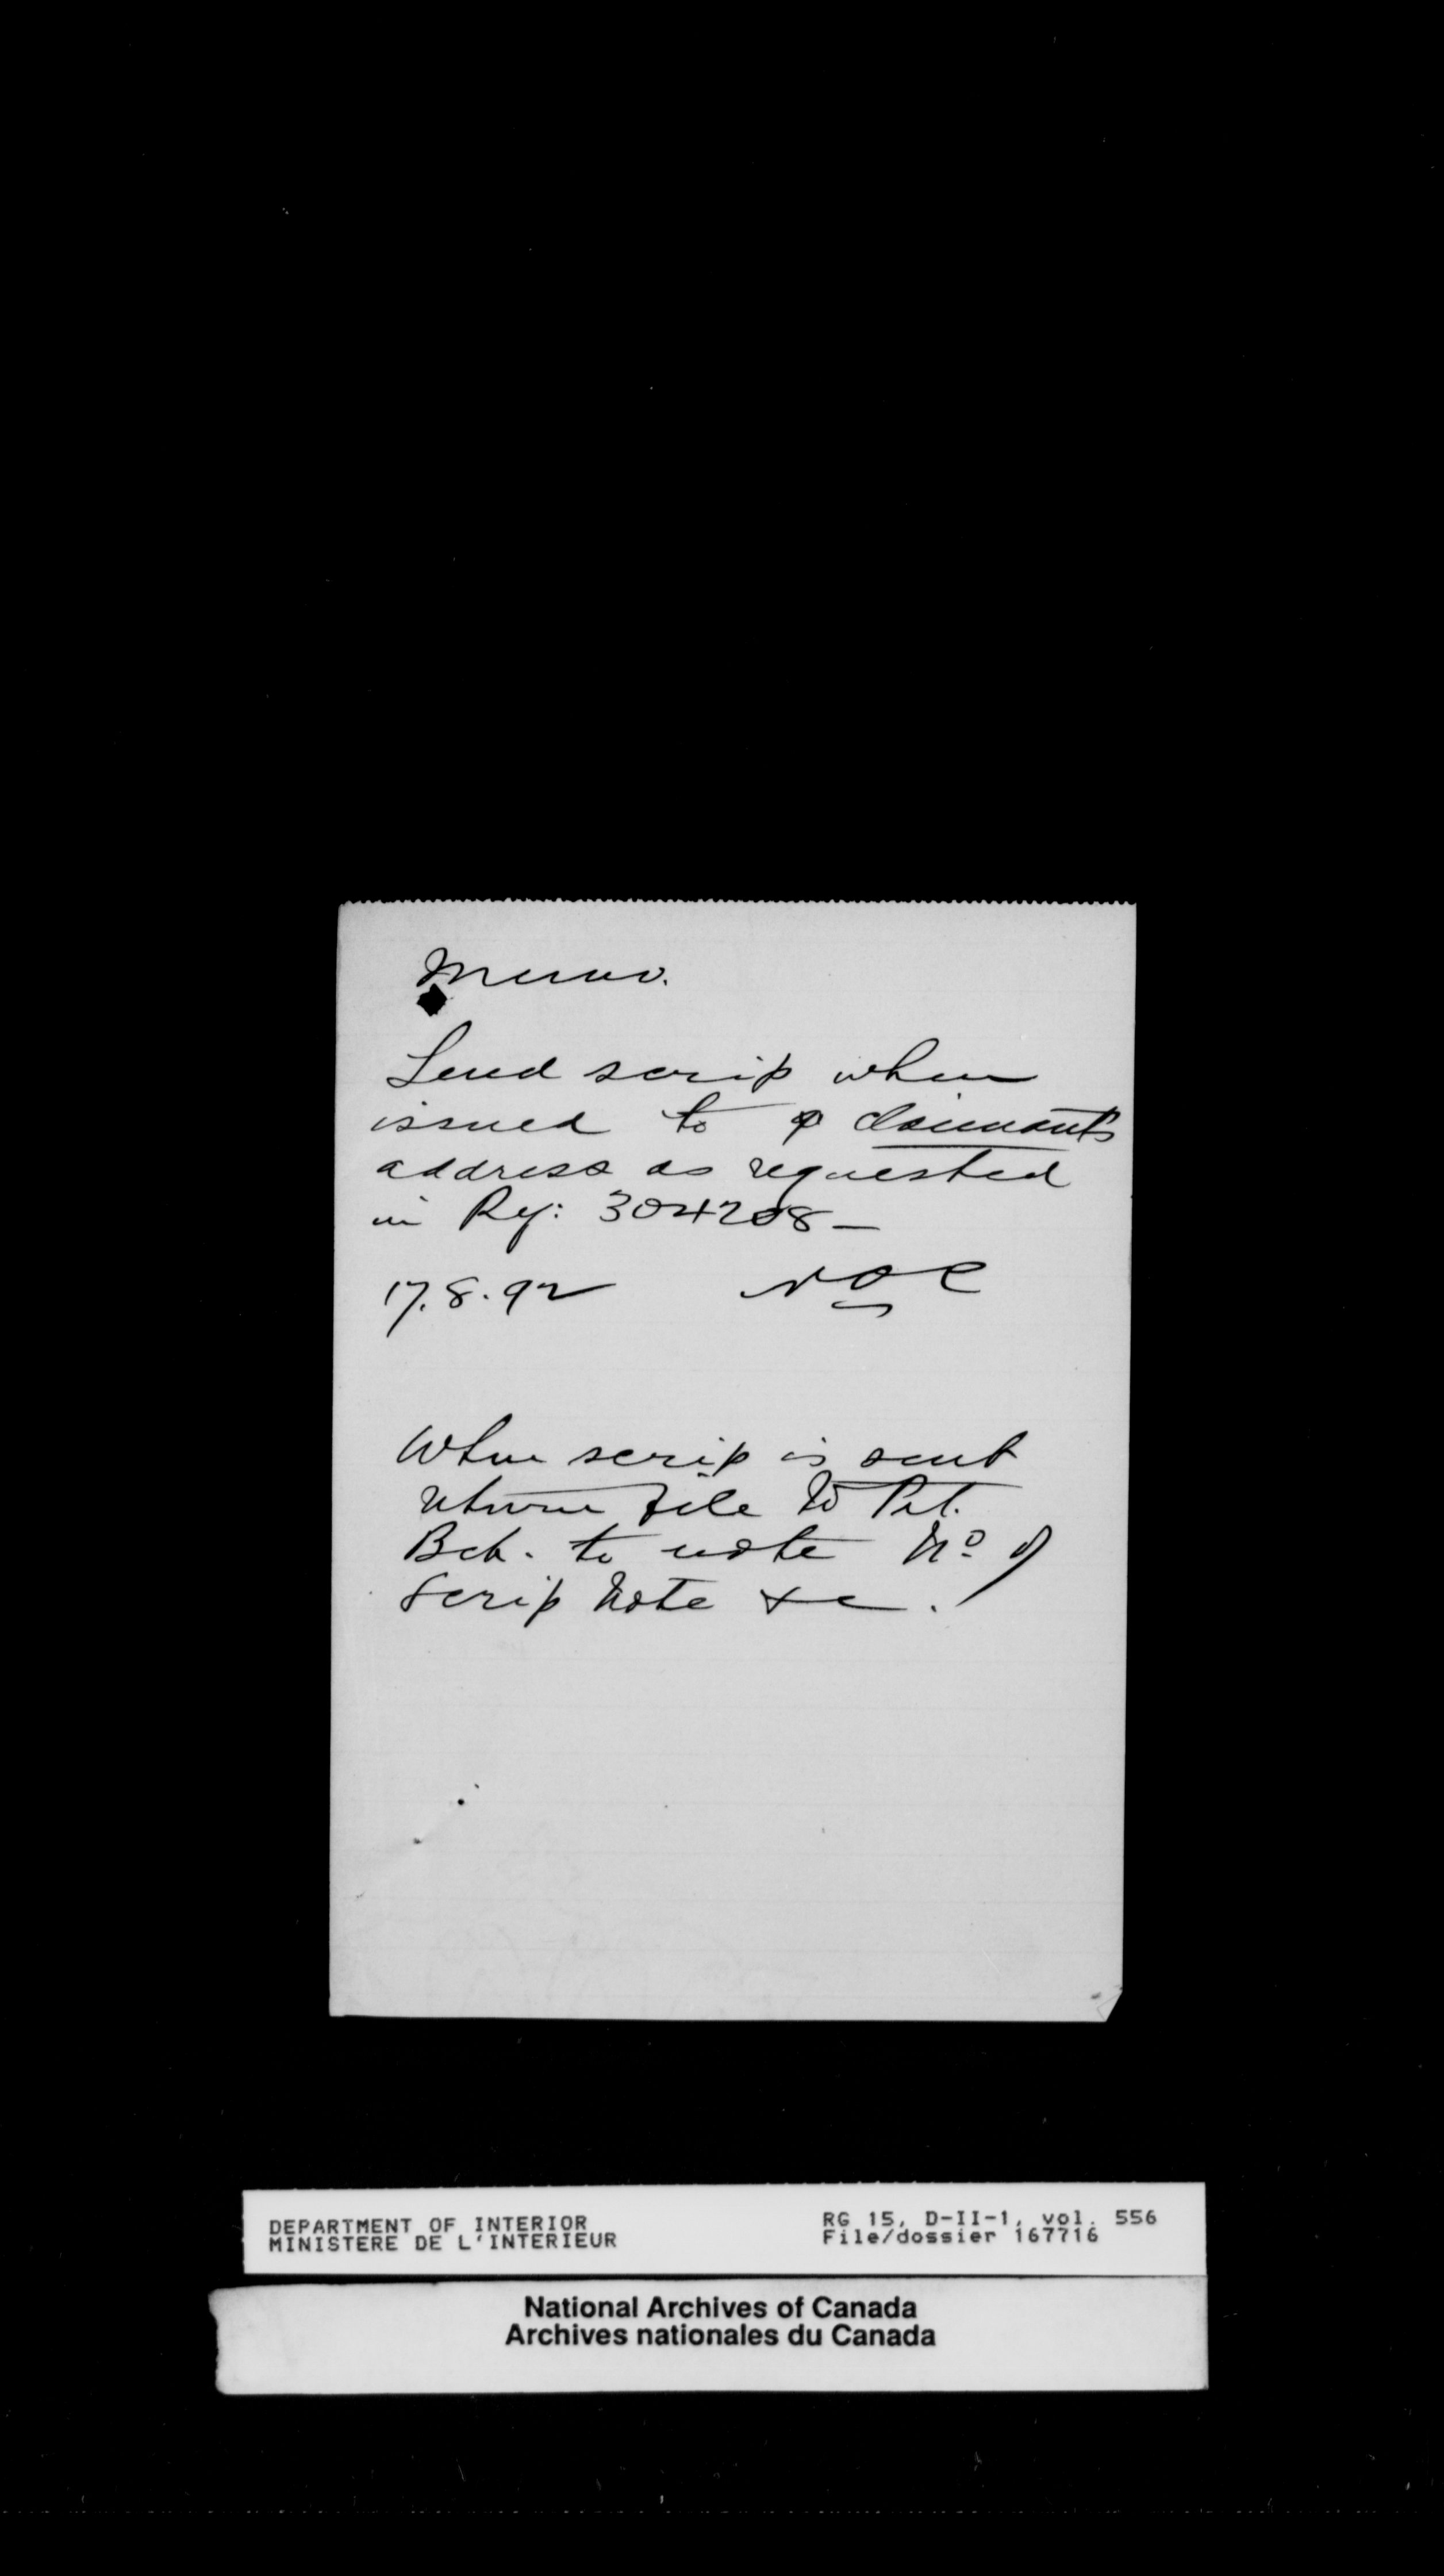 Memo.
Send scrip when
issued to claimants
address as requested
in Ref: 304208 —
17.8.92 NOC
When scrip is sent
return file to Pat.
Bch. to note No of
Scrip Note &c.
DEPARTMENT OF INTERIOR
MINISTERE DE L'INTERIEUR
RG 15, D-II-1, vol. 556
File/dossier 167716
National Archives of Canada
Archives nationales du Canada